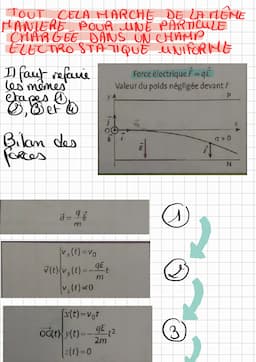 TOUT CELA MARCHE DE LA MÊME
MANIERE POUR UNE PARTICULE
CHARGEE DANS UN CHAMP
ELECTROSTATIQUE UNIFORME
Il faut refaire
les mêmes
étapes ①,
②, ③ et ④
Bilan des
forces
Force électrique F = qE
Valeur du poids négligée devant F
y
P
x
E
q > 0
N
a = q/m E
①
v(t)
vₓ(t) = v₀
vᵧ(t) = - qE/m t
v_z(t) = 0
②
OG(t)
x(t) = v₀t
y(t) = - qE/2m t²
z(t) = 0
③